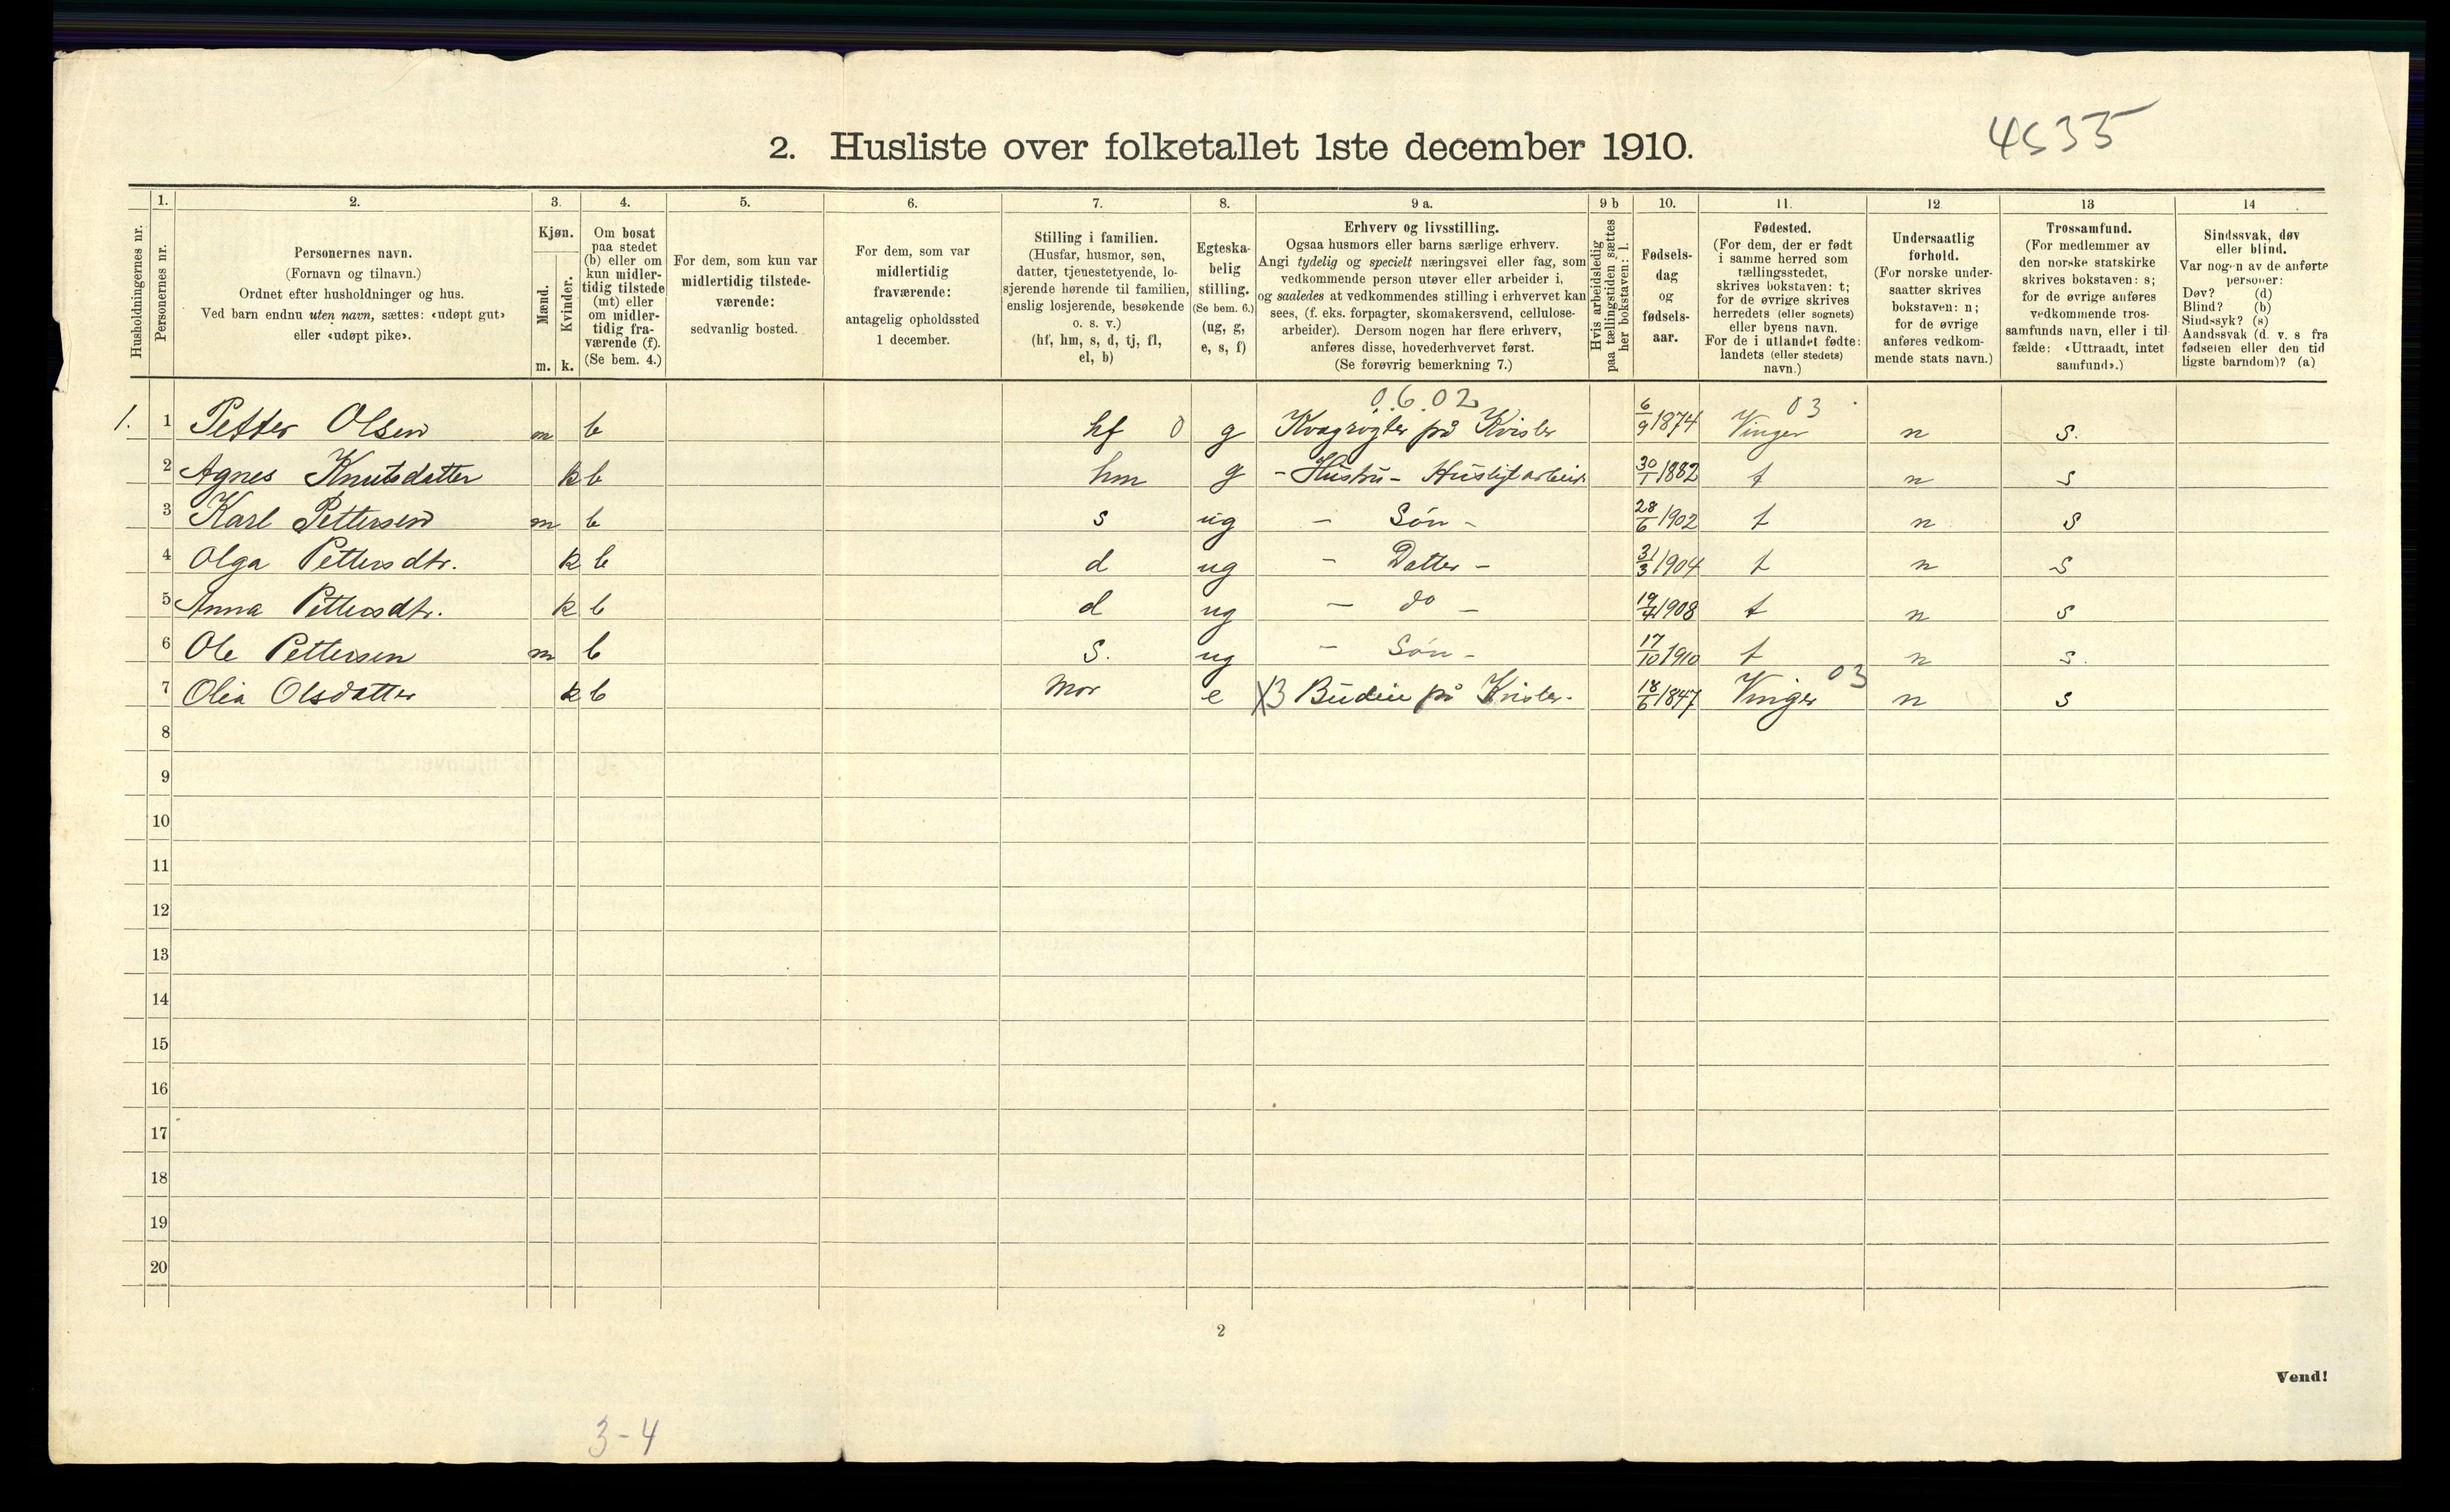 4535
2. Husliste over folketallet 1ste december 1910.
Husholdningernes nr.
1.
Personernes nr.
2.
Personernes navn.
(Fornavn og tilnavn.)
Ordnet efter husholdninger og hus.
Ved barn endnu uten navn, sættes: «udøpt gut»
eller «udøpt pike».
3.
Kjøn.
Mænd.
Kvinder.
m. k.
4.
Om bosat
paa stedet
(b) eller om
kun midler-
tidig tilstede
(mt) eller
om midler-
tidig fra-
værende (f).
(Se bem. 4.)
5.
For dem, som kun var
midlertidig tilstede-
værende:
sedvanlig bosted.
6.
For dem, som var
midlertidig
fraværende:
antagelig opholdssted
1 december.
7.
Stilling i familien.
(Husfar, husmor, søn,
datter, tjenestetyende, lo-
sjerende hørende til familien,
enslig losjerende, besøkende
o. s. v.)
(hf, hm, s, d, tj, fl,
el, b)
8.
Egteska-
belig
stilling.
(Se bem. 6.)
(ug, g,
e, s, f)
9 a.
Erhverv og livsstilling.
Ogsaa husmors eller barns særlige erhverv.
Angi tydelig og specielt næringsvei eller fag, som
vedkommende person utøver eller arbeider i,
og saaledes at vedkommendes stilling i erhvervet kan
sees, (f. eks. forpagter, skomakersvend, cellulose-
arbeider). Dersom nogen har flere erhverv,
anføres disse, hovederhvervet først.
(Se forøvrig bemerkning 7.)
9 b
Hvis arbeidsledig
paa tællingstiden sættes
her bokstaven: l.
10.
Fødsels-
dag
og
fødsels-
aar.
11.
Fødested.
(For dem, der er født
i samme herred som
tællingsstedet,
skrives bokstaven: t;
for de øvrige skrives
herredets (eller sognets)
eller byens navn.
For de i utlandet fødte:
landets (eller stedets)
navn.)
12.
Undersaatlig
forhold.
(For norske under-
saatter skrives
bokstaven: n;
for de øvrige
anføres vedkom-
mende stats navn.)
13
Trossamfund.
(For medlemmer av
den norske statskirke
skrives bokstaven: s;
for de øvrige anføres
vedkommende tros-
samfunds navn, eller i til
fælde: «Uttraadt, intet
samfund».)
14
Sindssvak, døv
eller blind.
Var nogen av de anførte
personer:
Døv? (d)
Blind? (b)
Sindssyk? (s)
Aandssvak (d. v. s fra
fødselen eller den tid
ligste barndom)? (a)
0.6.02 03
1. 1 Petter Olsen m b hf 0 g Kvægrøgter på Kvisler 6/9 1874 Vinger n s.
2 Agnes Knutsdatter k b hm g - Hustru - Husligt arbeide 30/1 1882 t n s
3 Karl Pettersen m b s ug - Søn - 28/6 1902 t n s
4 Olga Pettersdtr. k b d ug - Datter - 31/3 1904 t n s
5 Anna Pettersdtr. k b d ug - do - 19/4 1908 t n s
6 Ole Pettersen m b s. ug - Søn - 17/10 1910 t n s.
7 Olia Olsdatter k b Mor e X3 Budeie på Kvisler. 18/6 1847 Vinger 03 n s
8
9
10
11
12
13
14
15
16
17
18
19
20
2
Vend!
3-4